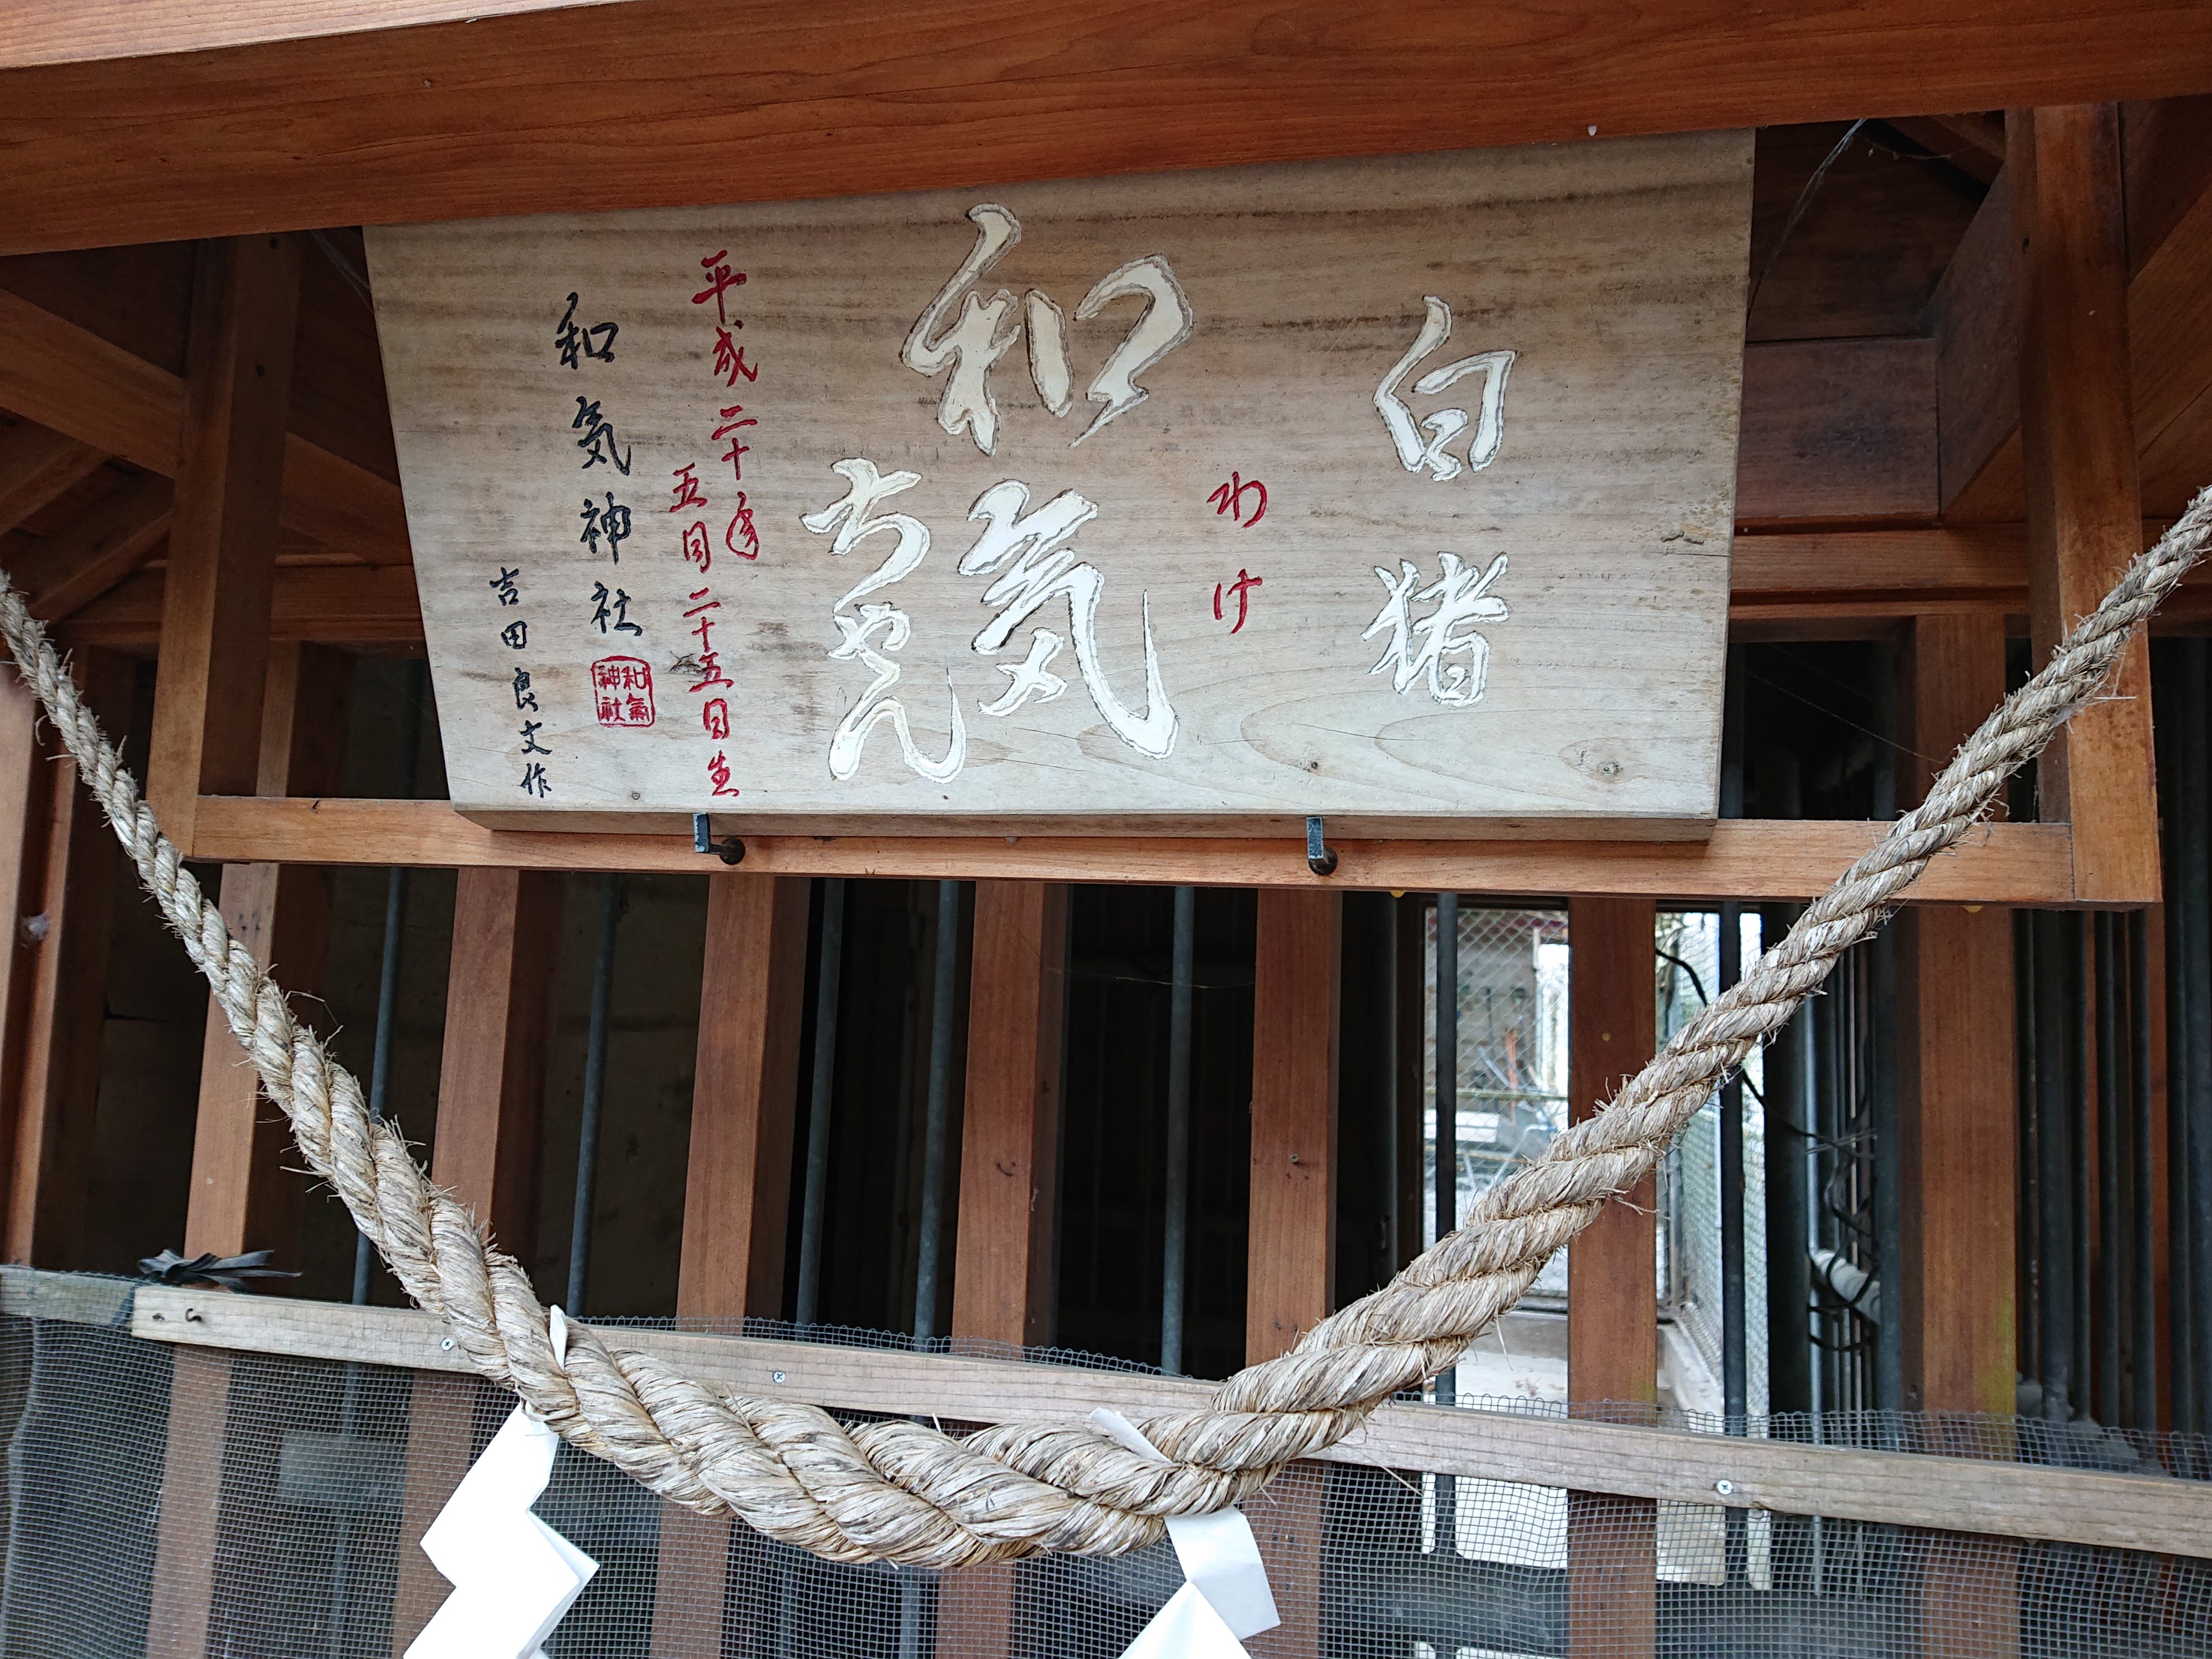 白猪
わけ
和気
ちゃん
平成二十年
五月二十五日生
和気神社
和氣
神社
吉田良文作